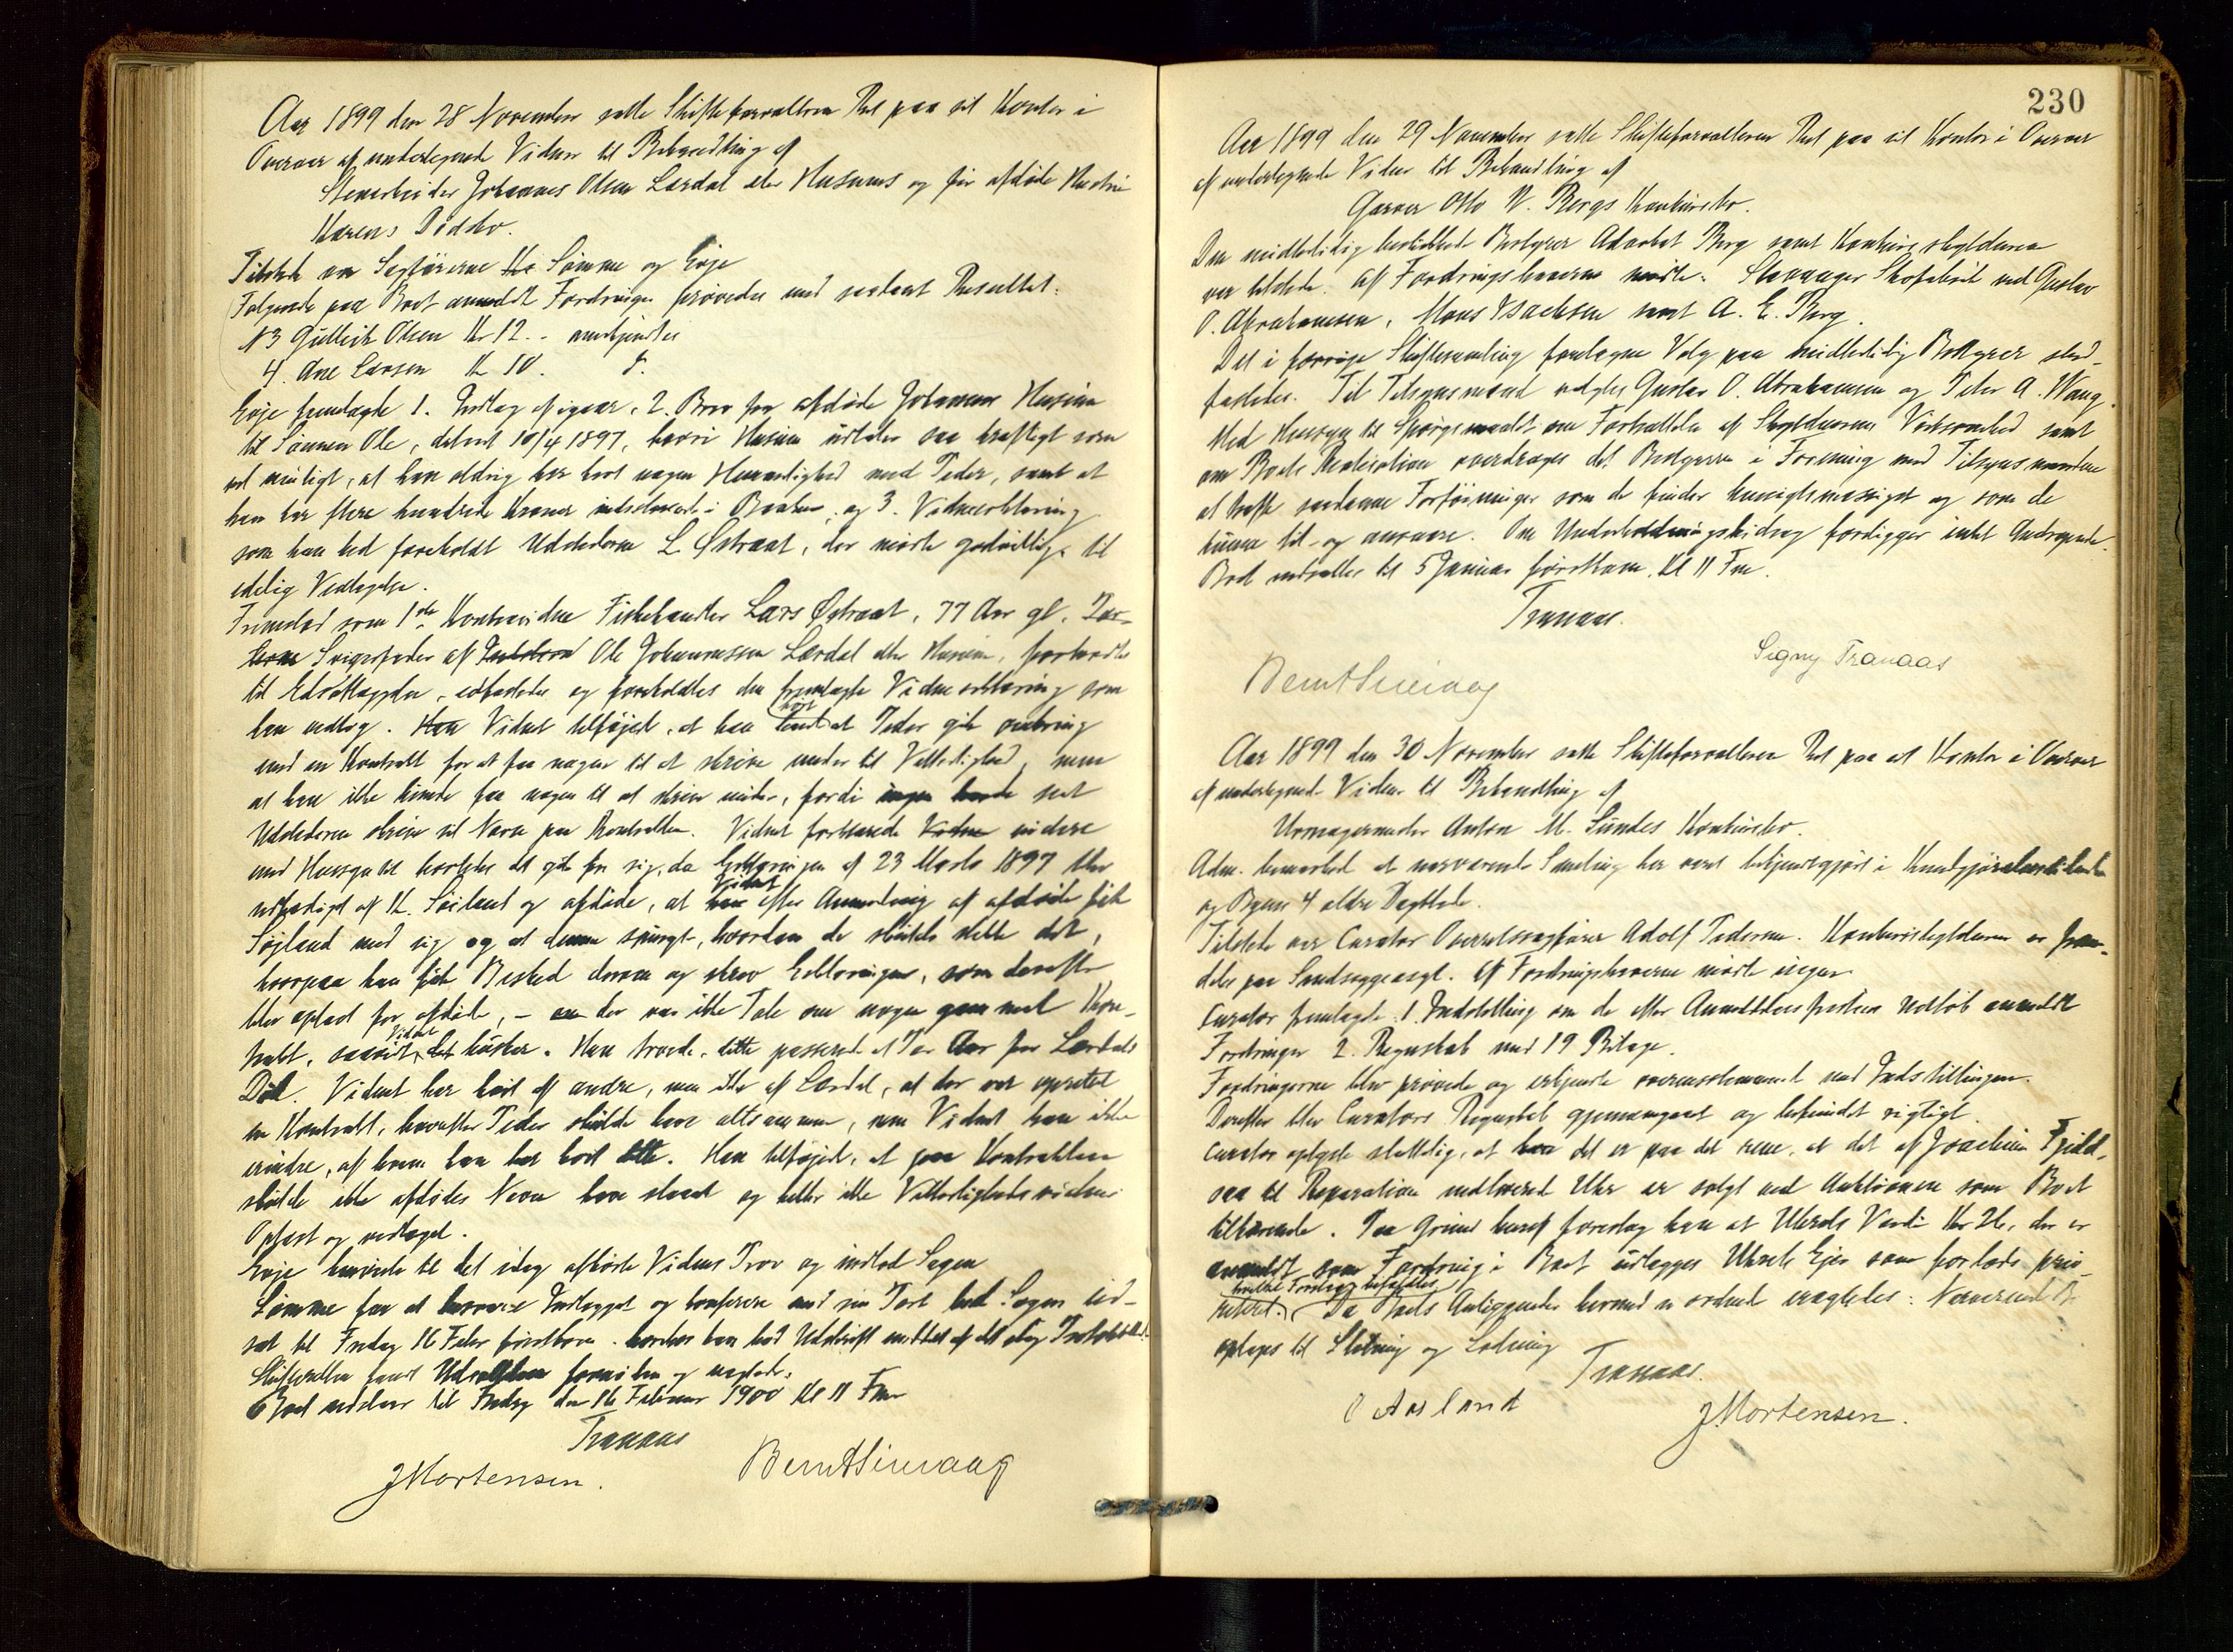 Aar 1899 den 28 November satte Skifteforvalteren Ret paa sit Kontor i
Overvær af undertegnede Vidner til Behandling af
Stenarbeider Johannes Olsen Lærdal eller Husums og før afdøde Hustru
Karens Dødsbo.
Tilstede var Sagførerne Sømme og Eeje
Følgende paa Boet anmeldte Fordringer prøvedes med saadant Resultat:
N 3 Gullik Olsen Kr 12 .. anerkjendtes
4. Ane Larsen Kr 10.
fremlagde 1. Indlæg af igaar, 2. Brev fra afdøde Johannes Husum
til Sønnen Ole, dateret 10/4 1897, hvori Husum udtaler saa kraftigt som
vel muligt, at han aldrig har havt nogen Hemmelighed med Peder, samt at
han har flere hundrede Kroner indestaaende i Banken, og 3. Vidneerklæring
som han bad foreholdt Udstederen L. Østraat, der mødte godvilligt til
edelig Vedtagelse.
Fremstod som 1ste Kontravidne Fiskehandler Lars Østraat, 77 Aar gl.
Svigerfader af Ole Johannessen Lærdal eller Husum, formanedes
til Edsaflæggelse, edfæstedes og foreholdtes den fremlagte Vidneerklæring som
han vedtog. Vidnet tilføjed, at han hørt at Peder gik omkring
med en Kontrakt for at faa nogen til at skrive under til Vitterlighed, men
at han ikke kunde faa nogen til at skrive under, fordi ingen havde seet
Udstederen skrive sit Navn paa Kontrakten. Vidnet forklarede videre
med Hensyn til hvorledes det gik for sig, da Erklæringen af 23 Marts 1897 blev
udfærdiget af K. Søiland og afdøde, at Vidnet efter Anmodning af afdøde fik
Søjland med sig og at denne spurgte, hvordan de skulde stelle det,
hvorpaa han fik Besked derom og skrev Erklæringen, som derefter
blev oplæst for afdøde, – der var ikke Tale om nogen gammel Kon-
trakt, saavidt Vidnet husker. Han troede, dette passered et Par Aar før Lærdals
Død. Vidnet har hørt af andre, men ikke af Lærdal, at der var oprettet
en Kontrakt, hvorefter Peder skulde have altsammen, men Vidnet kan ikke
erindre, af hvem han har hørt dette. Han tilføjed, at paa Kontrakten
skulde ikke afdødes Navn have staaet og heller ikke Vitterlighedsvidner
Oplæst og vedtaget.
henviste til det idag afhørte Vidnes Prov og indlod Sagen
Sømme for at besvare Indlægget og konferere med sin Part bad Sagen ud-
sat til Fredag 16 Febr førstkom. hvorhos han bad Udskrift meddelt af det idag
Skifteretten fandt Udsættelsen fornøden og vægtede.
Boet udsattes til Fredag den 16 Februar 1900 Kl 11 Fm
Tranaas
JMortensen.
230
Aar 1899 den 29 November satte Skifteforvalteren Ret paa sit Kontor i Overvær
af undertegnede Vidner til Behandling af
Garver Otto W. Bergs Konkursbo.
Den midlertidig beskikkede Bestyrer Advokat Berg samt Konkursskyldneren
var tilstede. Af Fordringshaverne mødte: Stavanger Skofabrik ved Gustav
O. Abrahamsen, Mons Isachsen samt A. E. Berg.
Det i forrige Skiftesamling foretagne Valg paa midlertidig Bestyrer stad-
fæstedes. Til Tilsynsmænd valgtes Gustav O. Abrahamsen og Peter A. Waag.
Med Hensyn til Spørgsmaalet om Fortsættelse af Skyldnerens Virksomhed samt
om Boets Realisation overdroges det Bestyreren i Forening med Tilsynsmændene
at træffe saadanne Forføininger som de finder hensigtsmæssiget og som de
kunne til- og ansvare. Om Underholdningsbidrag foreligger intet Andragende.
Boet udsattes til 5 Januar førstkom. Kl 11 Fm.
Tranaas.
Signy Tranaas
Aar 1899 den 30 November satte Skifteforvalteren Ret paa sit Kontor i Overvær
af undertegnede Vidner til Behandling af
Urmagermester Anton M. Sundes Konkursbo.
Adm. bemærked at nærværende Samling har været bekjendtgjort i Kundgjørelsestidende
og Byens 4 ældre Dagblade.
Tilstede var Curator Overretssagfører Adolf Pedersen. Konkursskyldneren er frem-
deles paa Sindssygeasyl. Af Fordringshaverne mødte ingen
Curator fremlagde: 1. Indstilling om de efter Anmeldelsesfristens Udløb anmeldte
Fordringer 2. Regnskab med 19 Bilage.
Fordringerne blev prøvede og erkjendte overensstemmende med Indstillingen.
Derefter blev Curators Regnskab gjennemgaaet og befundet rigtigt.
Curator oplyste sluttelig, at det er paa det rene, at det af Joachim Fjeld-
saa til Reparation indleverede Uhr er solgt ved Auktionen som Boet
tilhørende. Paa Grund heraf foreslog han at Uhrets Værdi Kr 26, der er
anmeldt som Fordring i Boet udlægges Uhrets Ejer som fortrins prio-
riteret. hvilket Forslag bifaldtes. Da Boets Anliggender hermed er ordnet vragtedes: Nærværende Bo
optages til Slutning og Lodning
Tranaas.
O Aasland
JMortensen.